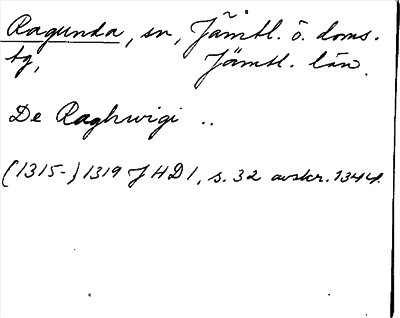 Ragunda, sn, Jämtl. ö. doms.
tg, Jämtl. län.
De Raghwigi ..
(1315-) 1319 JHD 1, s. 32 avskr. 1344.